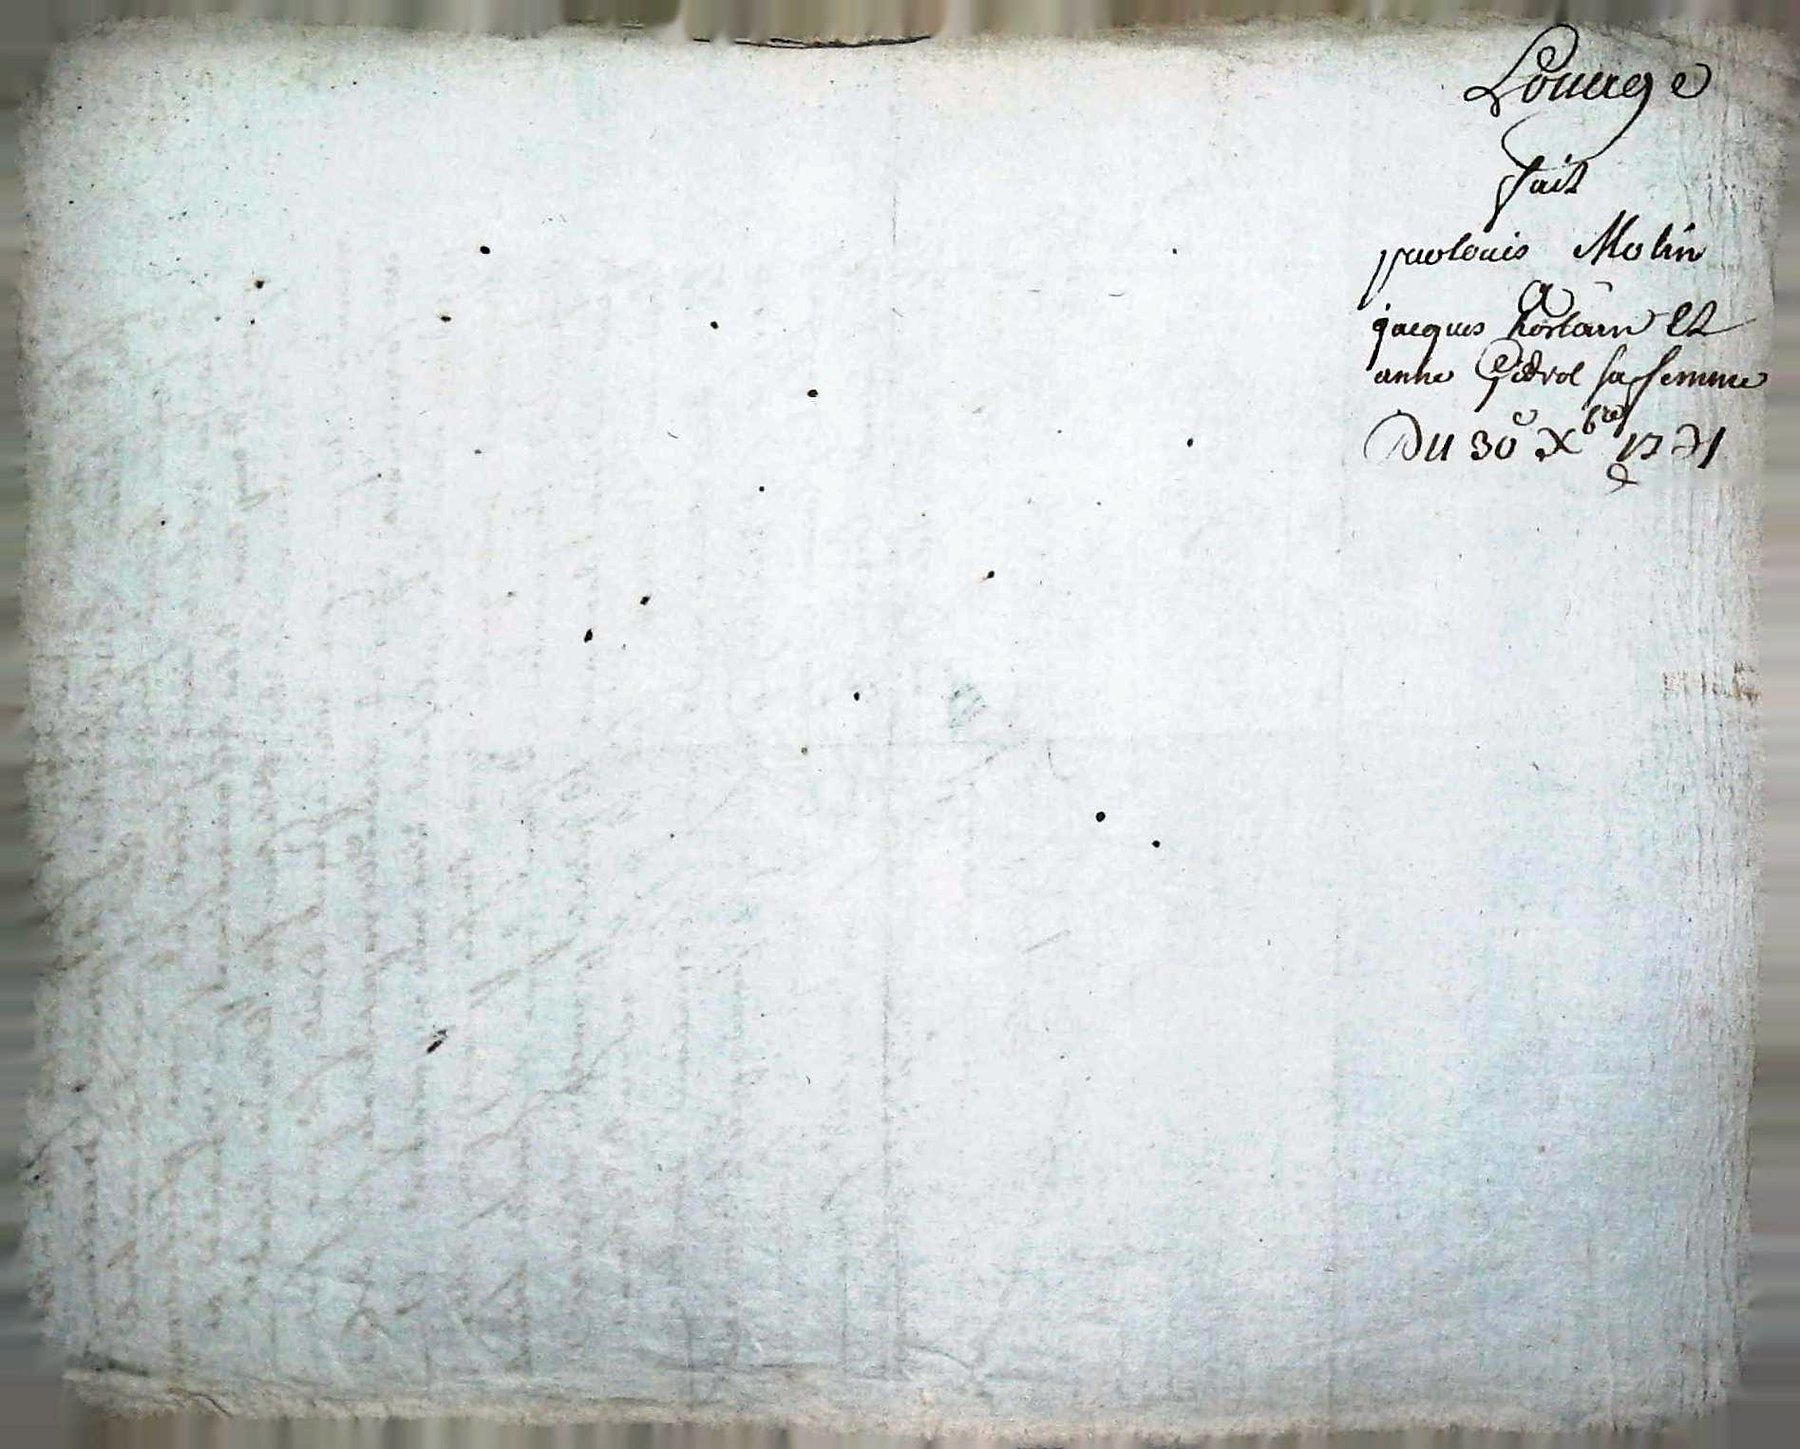 Louage
fait
par louis Molin
A
jacques hostain Et
anne Gidrol sa femme
Du 30e Xbre 1771